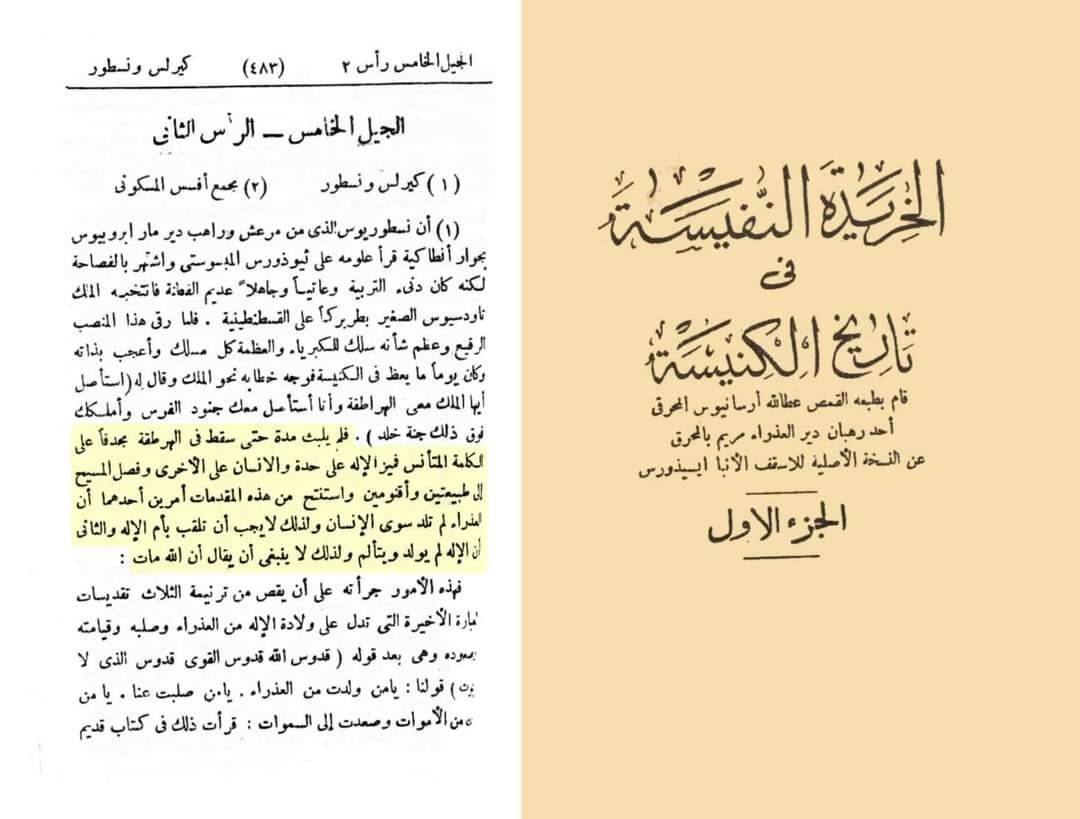 الجيل الخامس رأس ٢ (٤٨٣) كيرلس ونسطور
الجيل الخامس — الرأس الثانى
(١) كيرلس ونسطور (٢) مجمع أفسس المسكونى
(١) أن نسطوريوس الذى من مرعش وراهب دير مار ابروبيوس
بجوار أنطاكية قرأ علومه على ثيوذورس المبسوستى واشتهر بالفصاحة
لكنه كان دنىء التربية وعاتيــاً وجاهلاً عديم الفطنة فانتخبه الملك
تاودسيوس الصغير بطريركاً على القسطنطينية . فلما رقى هذا المنصب
الرفيع وعظم شأنه سلك للكبرياء والعظمة كل مسلك وأعجب بذاته
وكان يوماً ما يعظ فى الكنيسة فوجه خطابه نحو الملك وقال له (استأصل
أيها الملك معى الهراطقة وأنا أستأصل معك جنود الفرس وأملكك
فوق ذلك جنة خلد ) . فلم يلبث مدة حتى سقط فى الهرطقة مجدفاً على
الكلمة المتأنس فميز الإله على حدة والانسان على الأخرى وفصل المسيح
إلى طبيعتين وأقنومين واستنتج من هذه المقدمات أمرين أحدهما أن
العذراء لم تلد سوى الإنسان ولذلك لايجب أن تلقب بأم الإله والثانى
أن الإله لم يولد ويتألم ولذلك لا ينبغى أن يقال أن الله مات :
فهذه الأمور جرأته على أن يقص من ترنيمة الثلاث تقديسات
العبارة الأخيرة التى تدل على ولادة الإله من العذراء وصلبه وقيامته
وصعوده وهى بعد قوله ( قدوس الله قدوس القوى قدوس الذى لا
يموت ) قولنا : يامن ولدت من العذراء . يامن صلبت عنا . يا من
من الأموات وصعدت إلى السموات : قرأت ذلك فى كتاب قديم
الخريدة النفيسة
فى
تاريخ الكنيسة
قام بطبعه القمص عطالله أرسانيوس المحرقى
أحد رهبان دير العذراء مريم بالمحرق
عن النسخة الأصلية للاسقف الأنبا ايسيذورس
الجزء الاول